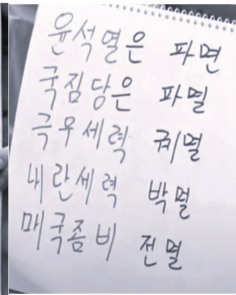 윤석열은 파면
국짐당은 파멸
극우세력 궤멸
내란세력 박멸
매국좀비 전멸